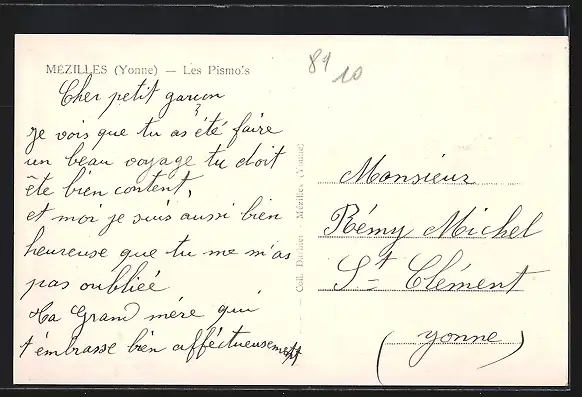 MÉZILLES (Yonne) — Les Pismo's
89
10
Cher petit garçon
je vois que tu as été faire
un beau voyage tu doit
ête bien content,
et moi je suis aussi bien
heureuse que tu me m'as
pas oubliéé
Ta Grand mére qui
t'émbrasse bien afféctueusement
Coll. - Mézilles (Yonne)
Monsieur
Rémy Michel
St Clément
(yonne)